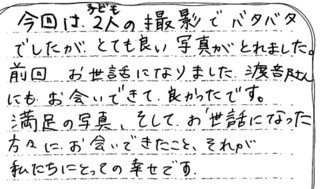 今回は、子ども2人の撮影でバタバタ
でしたが、とても良い写真がとれました。
前回 お世話になりました、渡部さん
にも お会いできて 良かったです。
満足の写真、そして お世話になった
方々に お会いできたこと、それが
私たちにとっての 幸せです